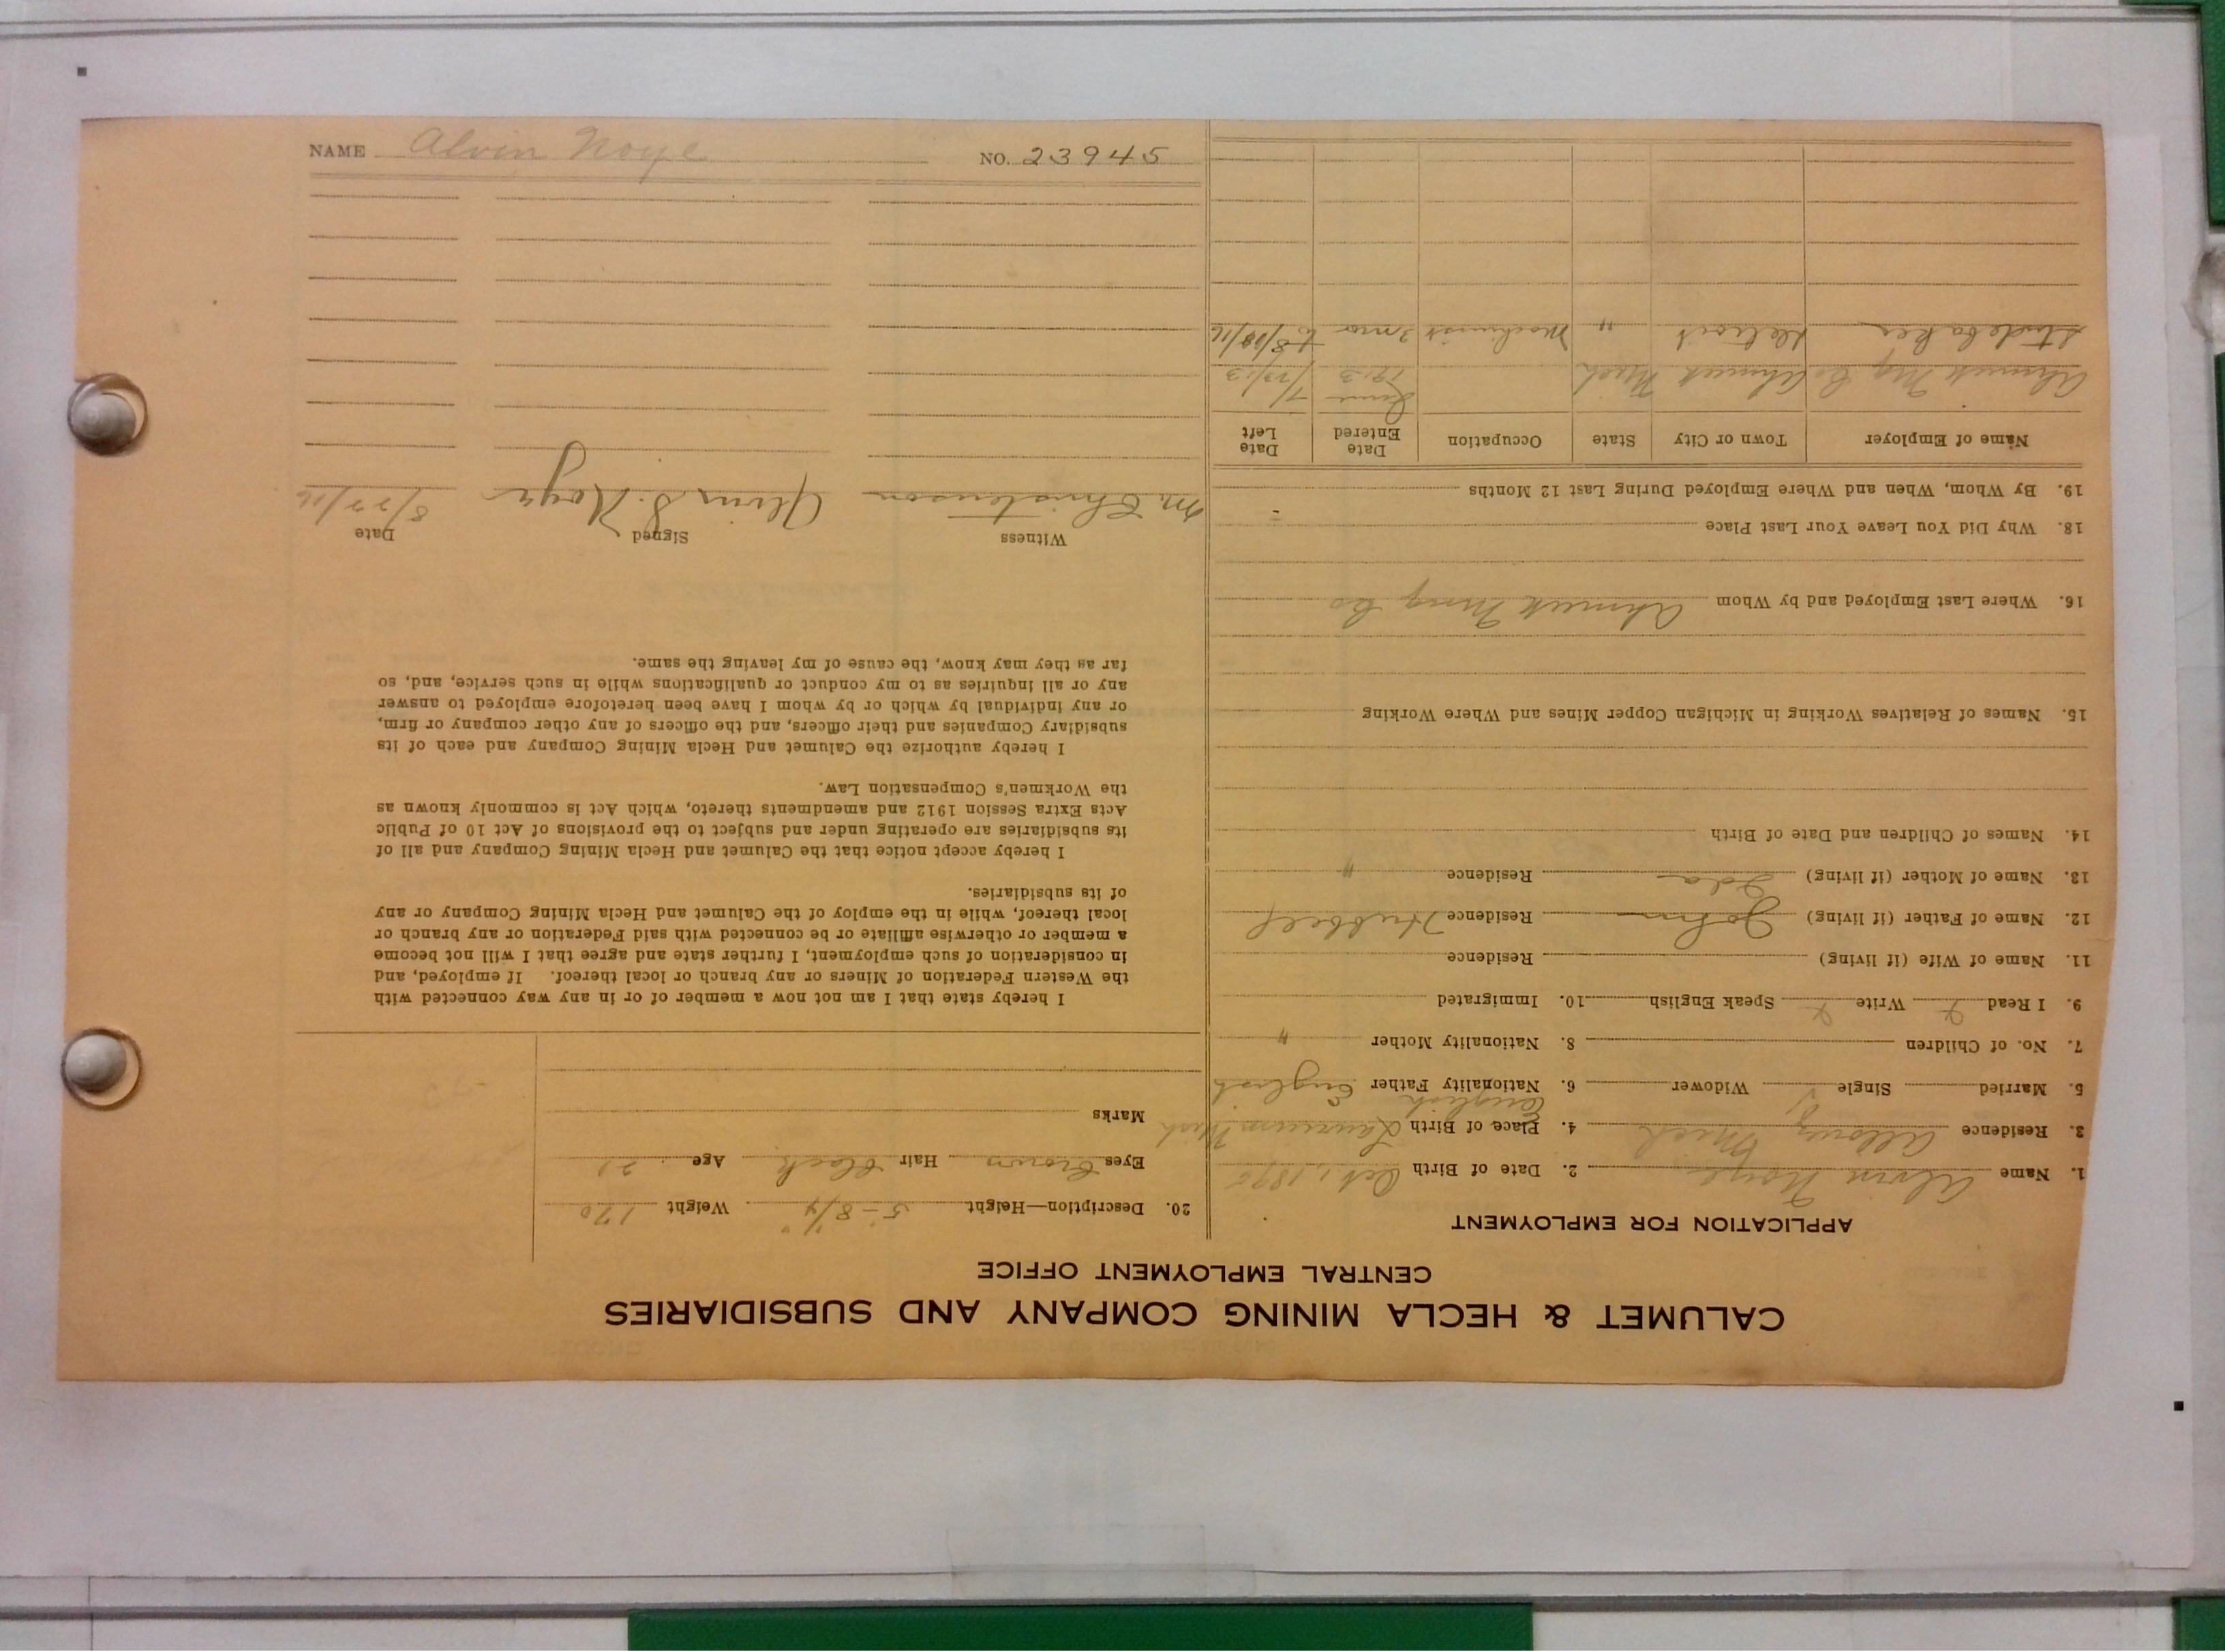 NAME Alvin Noye NO. 23945
CALUMET & HECLA MINING COMPANY AND SUBSIDIARIES
CENTRAL EMPLOYMENT OFFICE
APPLICATION FOR EMPLOYMENT
1. Name Alvin Noye 2. Date of Birth Oct 1, 1895
3. Residence Allouez Mich 4. Place of Birth Laurium Mich
English
5. Married Single Widower 6. Nationality Father English
7. No. of Children 8. Nationality Mother "
9. I Read Write Speak English 10. Immigrated
11. Name of Wife (if living) Residence
12. Name of Father (if living) John Residence Hubbell
13. Name of Mother (if living) Ida Residence "
14. Names of Children and Date of Birth
15. Names of Relatives Working in Michigan Copper Mines and Where Working
16. Where Last Employed and by Whom Ahmeek Mng Co
18. Why Did You Leave Your Last Place
19. By Whom, When and Where Employed During Last 12 Months
Name of Employer Town or City State Occupation Date Entered Date Left
Ahmeek Mng Co Ahmeek Mich June 1913 7/23/13
Studebaker Detroit " Machinist 3 mos to
20. Description—Height 5'-8 1/4" Weight 170
Eyes brown Hair black Age 21
Marks
I hereby state that I am not now a member of or in any way connected with
the Western Federation of Miners or any branch or local thereof. If employed, and
in consideration of such employment, I further state and agree that I will not become
a member or otherwise affiliate or be connected with said Federation or any branch or
local thereof, while in the employ of the Calumet and Hecla Mining Company or any
of its subsidiaries.
I hereby accept notice that the Calumet and Hecla Mining Company and all of
its subsidiaries are operating under and subject to the provisions of Act 10 of Public
Acts Extra Session 1912 and amendments thereto, which Act is commonly known as
the Workmen's Compensation Law.
I hereby authorize the Calumet and Hecla Mining Company and each of its
subsidiary Companies and their officers, and the officers of any other company or firm,
or any individual by which or by whom I have been heretofore employed to answer
any or all inquiries as to my conduct or qualifications while in such service, and, so
far as they may know, the cause of my leaving the same.
Witness Signed Date
M Christenson Alvin S. Noye 8/23/16